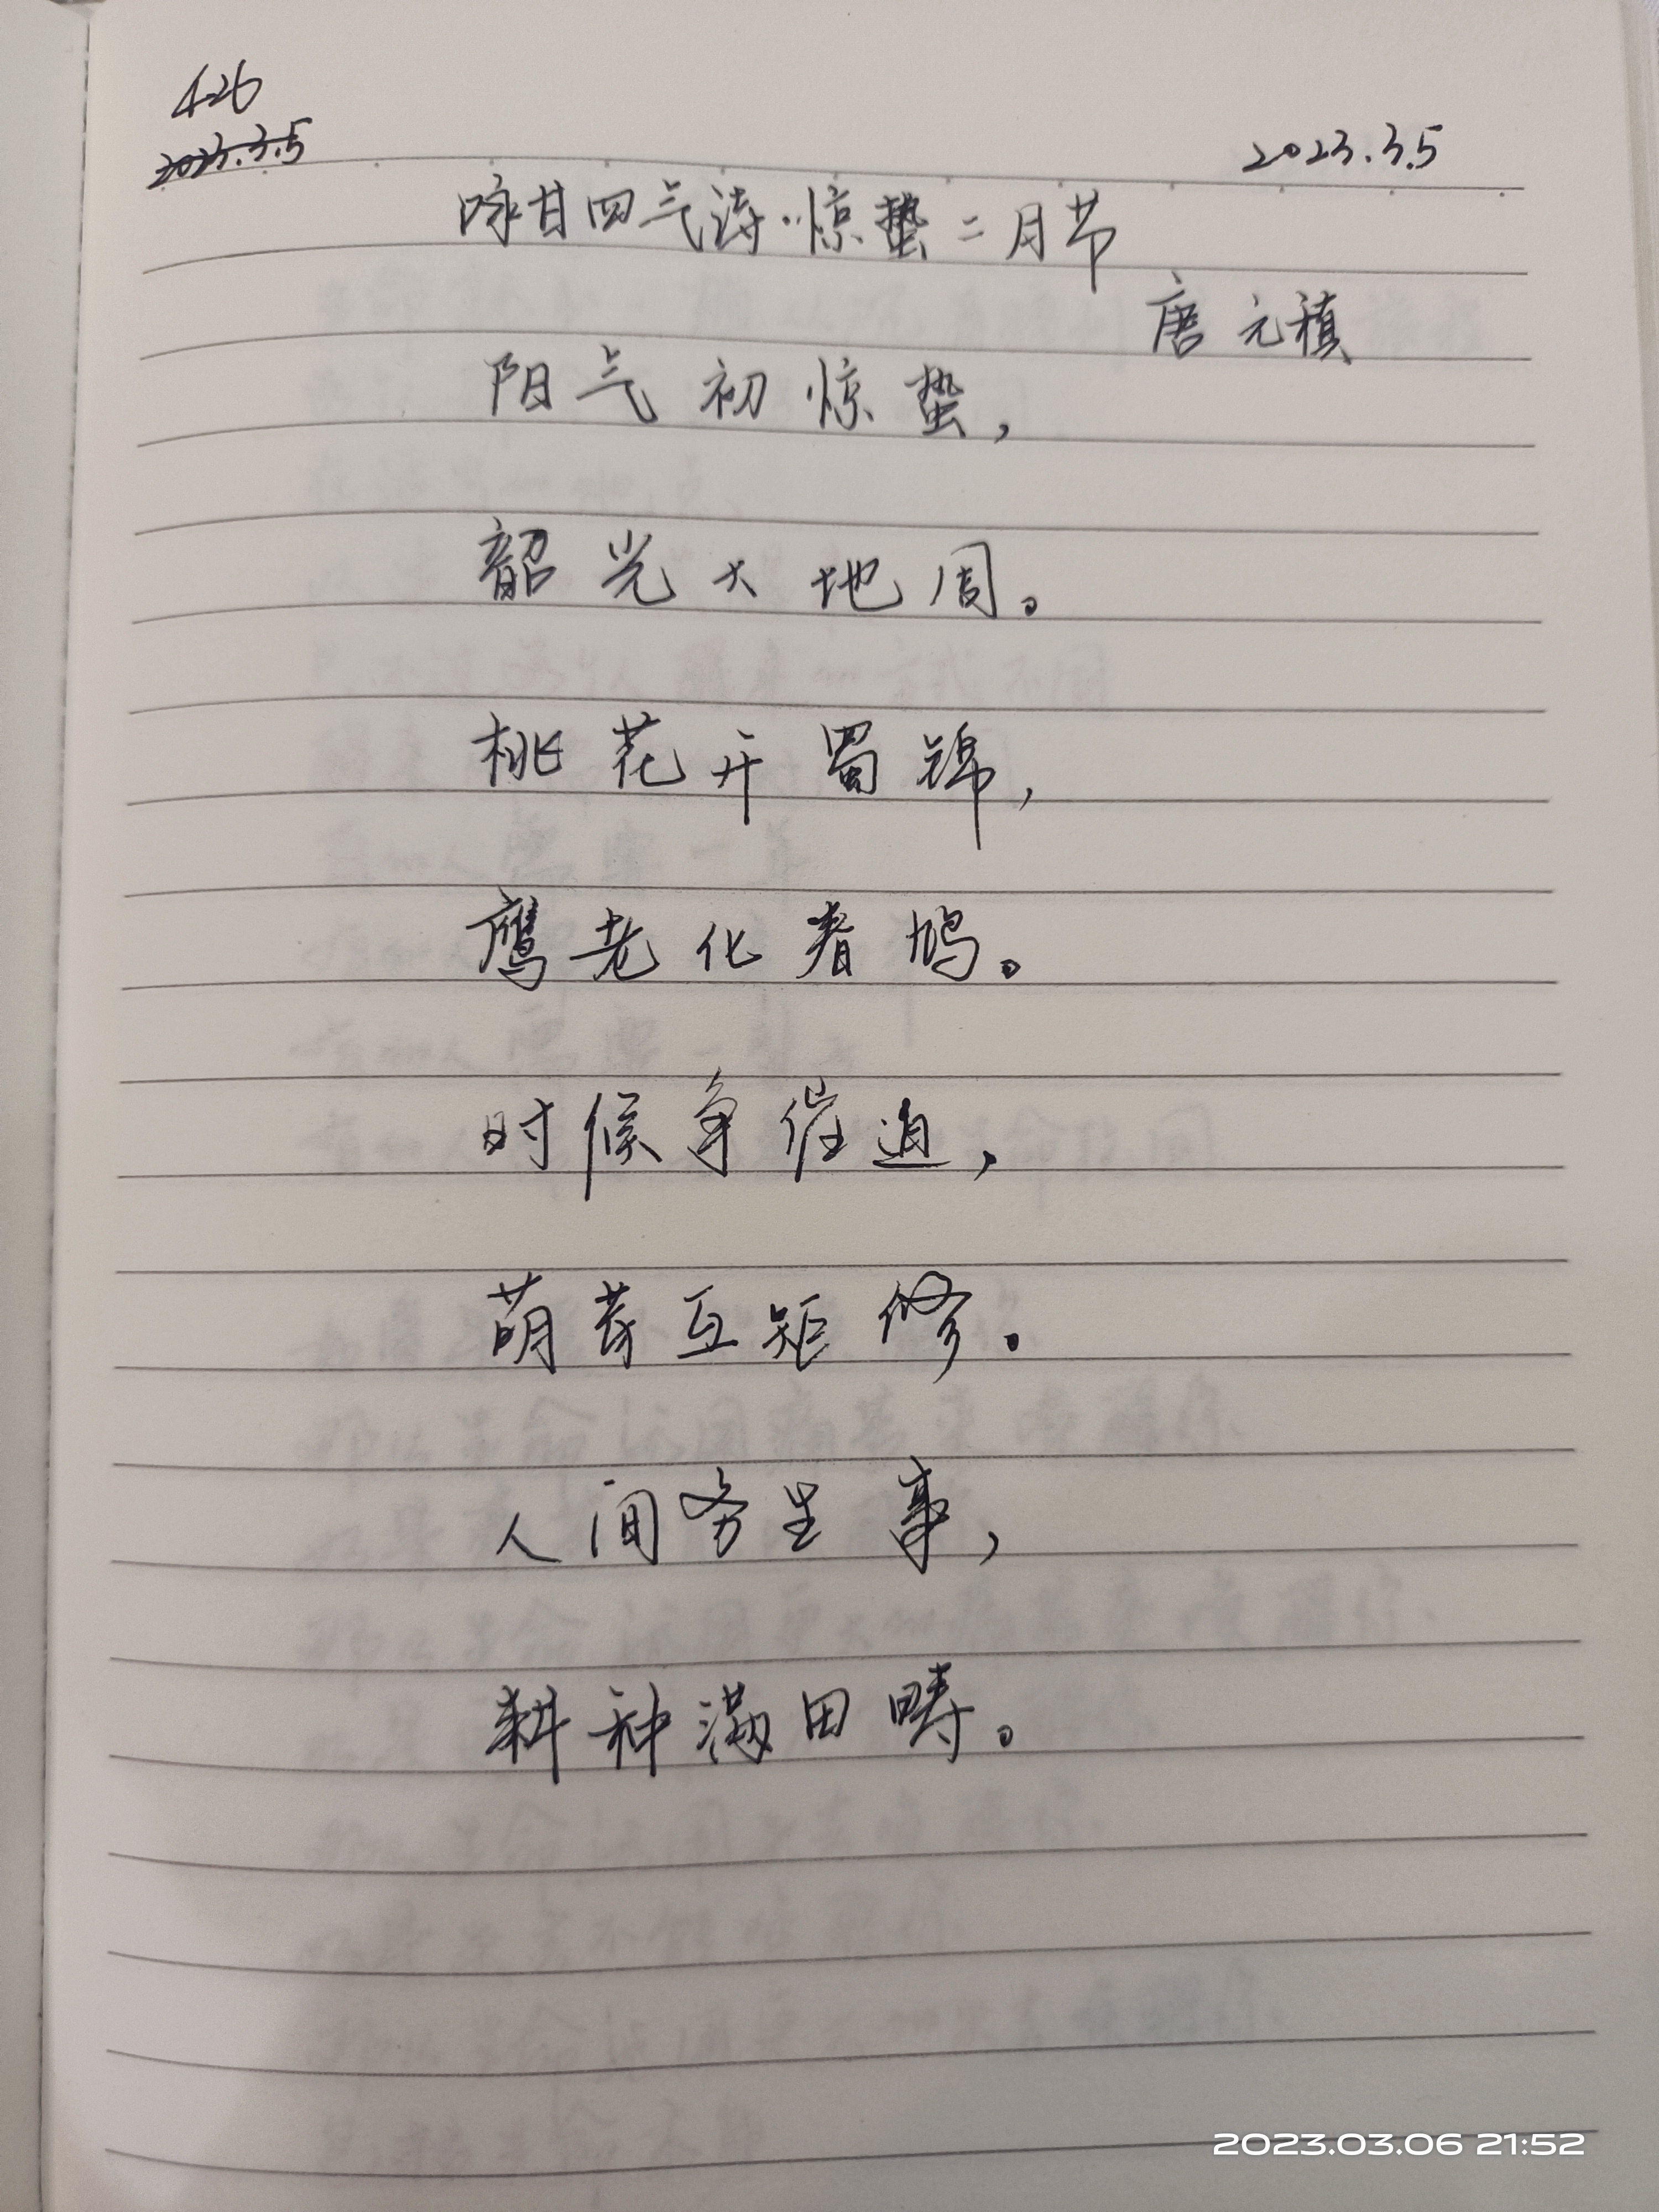 426
2023.3.5
2023.3.5
咏廿四气诗·惊蛰二月节
唐 元稹
阳气初惊蛰，
韶光大地周。
桃花开蜀锦，
鹰老化春鸠。
时候争催迫，
萌芽互矩修。
人间务生事，
耕种满田畴。
2023.03.06 21:52